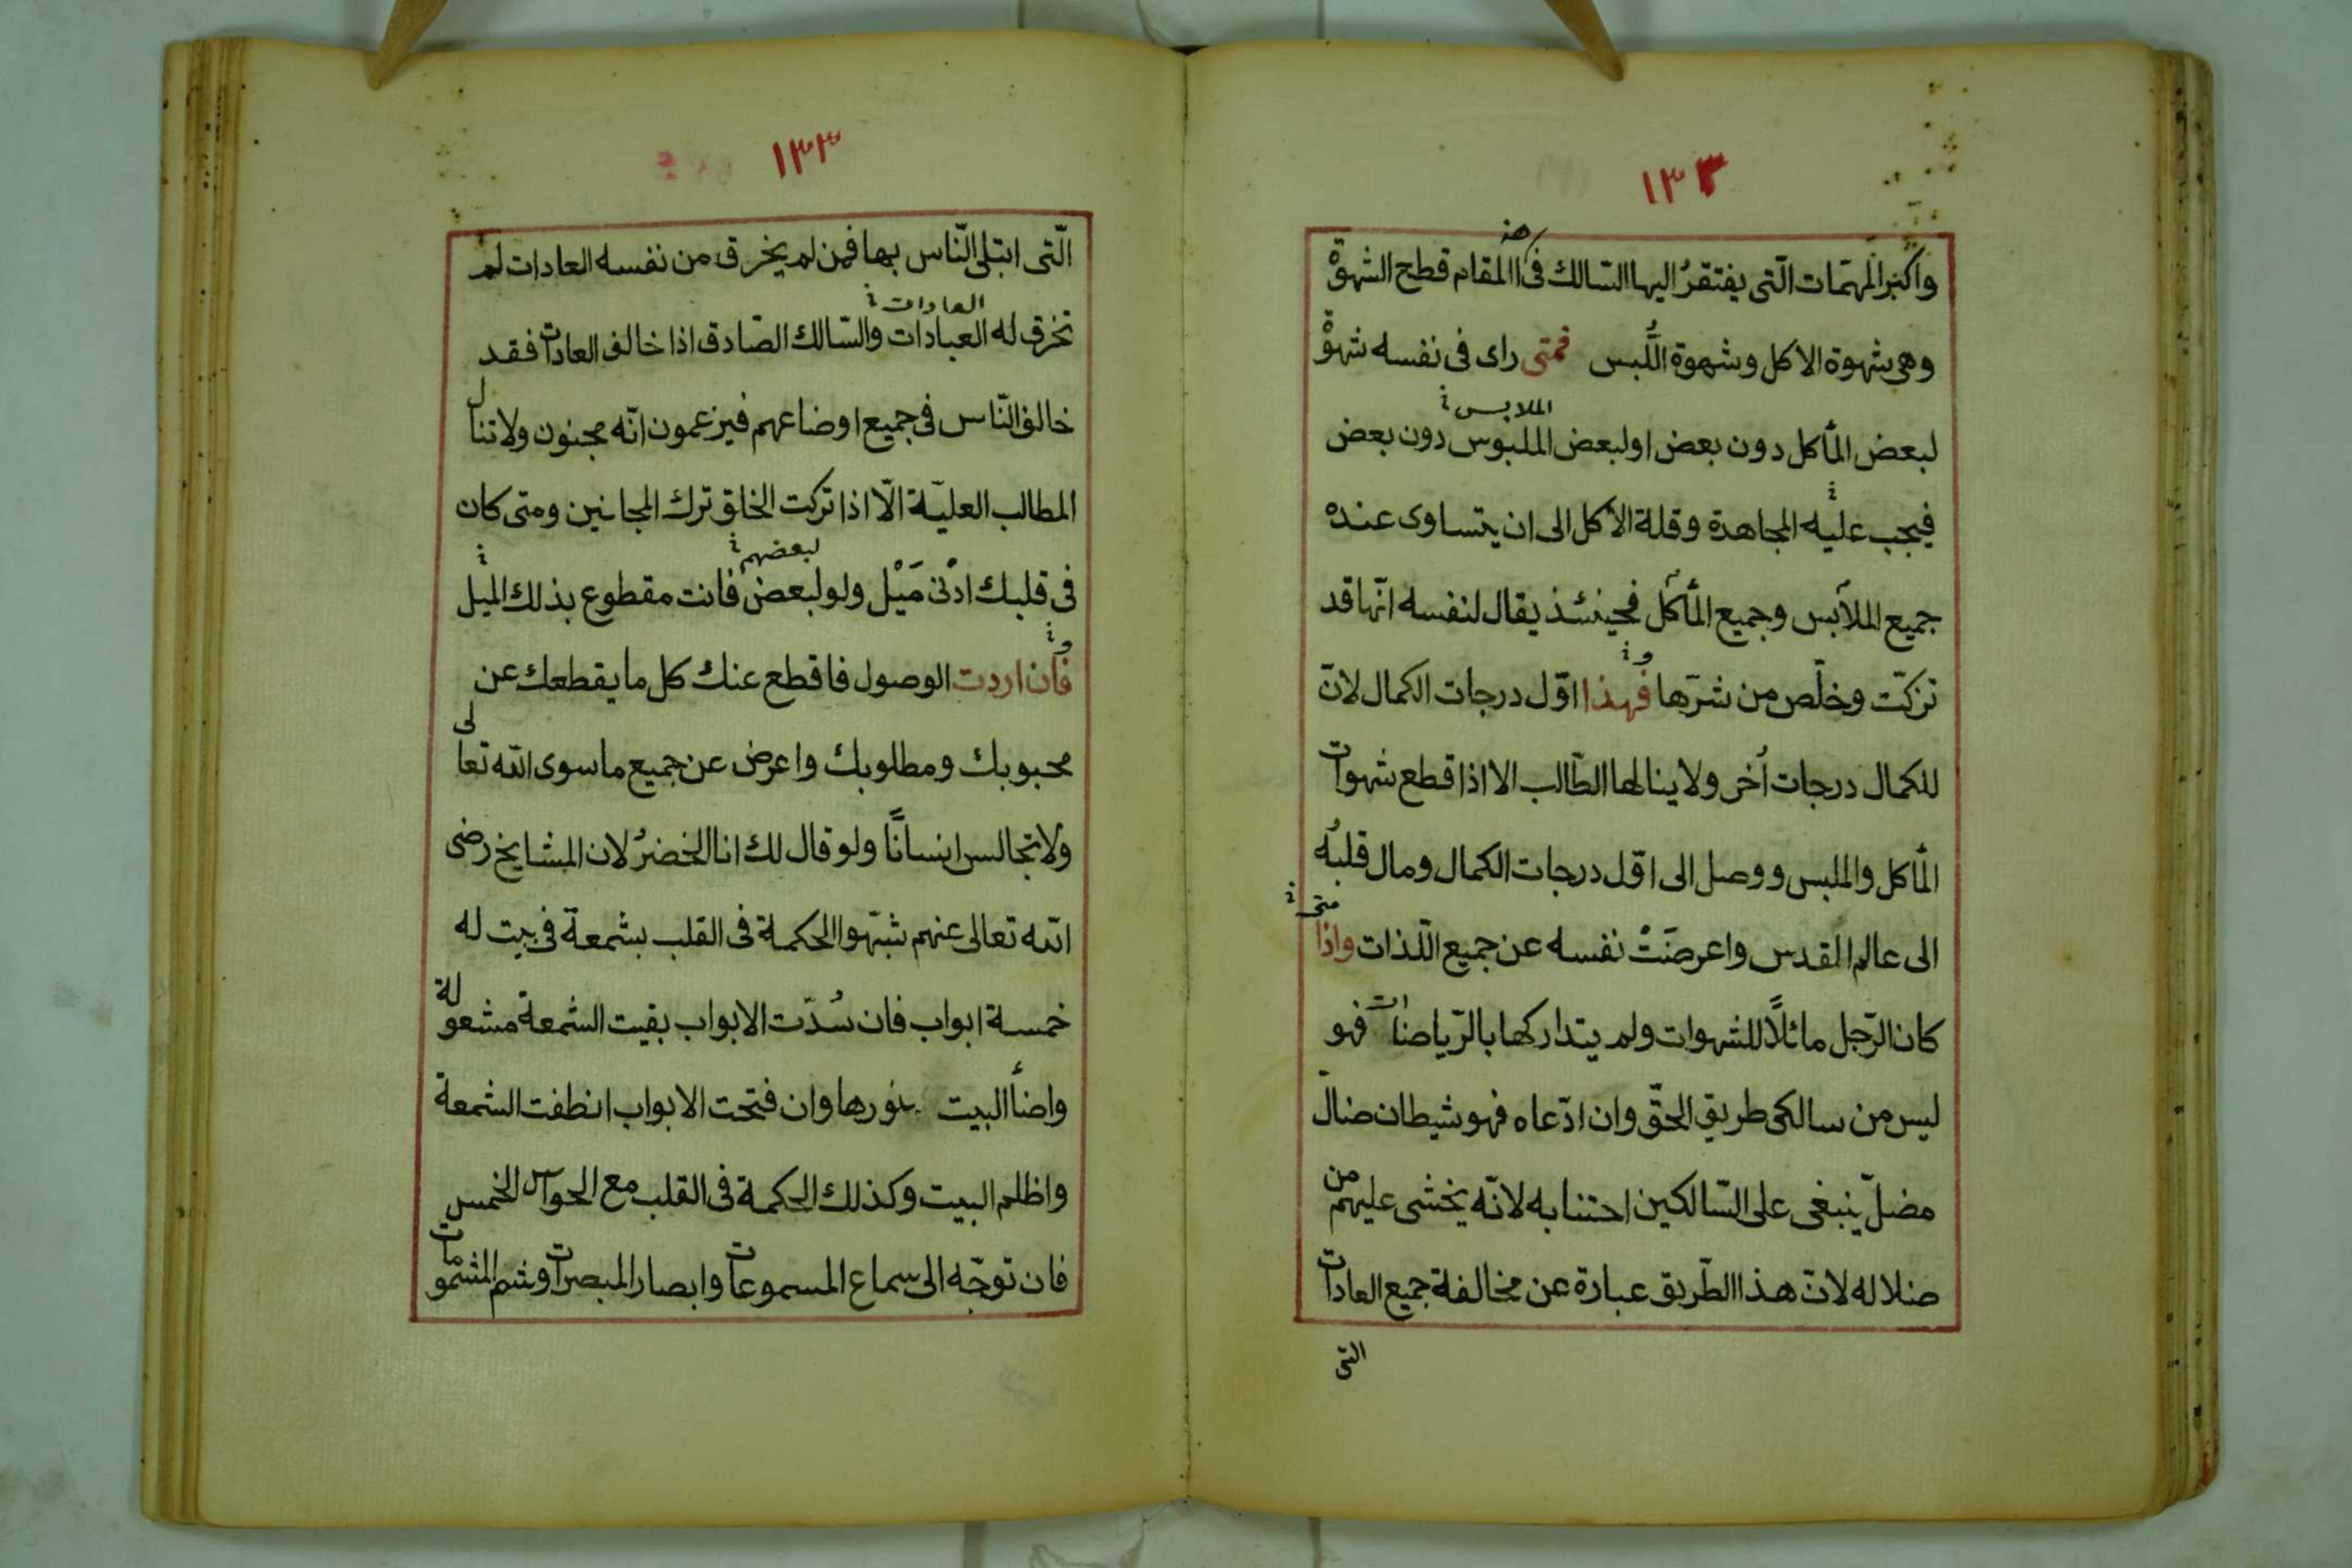 ١٣٢
واكبر المهمّات الّتى يفتقرُ اليها السّالك فى هذا المقام قطح الشهوة
وهى شهوة الاكل وشهوة اللُّبس فمتى راى فى نفسه شهوةْ
الملابس
لبعض المأكل دون بعض او لبعض الملبوس دون بعض
فيجب عليه المجاهدة وقلة الاكل الى ان يتساوى عنده
جميع الملآبس وجميع المأكل فحينئذ يقال لنفسه انّها قد
و
تزكّت وخلّص من شرّها فهذا اوّل درجات الكمال لانّ
للكمال درجات اُخر ولا ينالها الطّالب الا اذا قطع شهوات
المأكل والملبس ووصل الى اوّل درجات الكمال ومال قلبُه
متى
الى عالم القدس واعرضَتْ نفسه عن جميع الّلذات واذا
كان الرّجل مائلاً للشهوات ولم يتداركها بالرّياضات فهو
ليس من سالكى طريق الحقّ وان ادّعاه فهو شيطان ضالّ
مضلّ ينبغى على السّالكين احتنابه لانّه يخشى عليهم من
ضلاله لانّ هذا الطّريق عبارة عن مخالفة جميع العادات
التى
١٣٣
الّتى ابتلى النّاس بها فمن لم يخرق من نفسه العادات لم
العادات
تخرق له العبادات والسّالك الصّادق اذا خالف العادات فقد
خالف النّاس فى جميع اوضاعهم فيزعمون انّه مجنون ولا تنال
المطالب العليّة الّا اذا تركت الخلق ترك المجانين ومتى كان
لبعضهم
فى قلبك ادْنى مَيْل ولو لبعض فانت مقطوع بذلك الميل
و
فان اردت الوصول فاقطع عنك كل ما يقطعك عن
محبوبك ومطلوبك واعرض عن جميع ما سوى الله تعالى
ولا تجالس انسانًا ولو قال لك انا الخضرُ لان المشايخ رضى
الله تعالى عنهم شبّهوا الحكمة فى القلب بشمعة فى بيت له
خمسة ابواب فان سُدّت الابواب بقيت الشمعة مشعولة
واضأ البيت بنورها وان فتحت الابواب انطفت الشمعة
واظلم البيت وكذلك الحكمة فى القلب مع الحواس الخمس
فان توجّه الى سماع المسموعات وابصار المبصرات وشم المشمومات